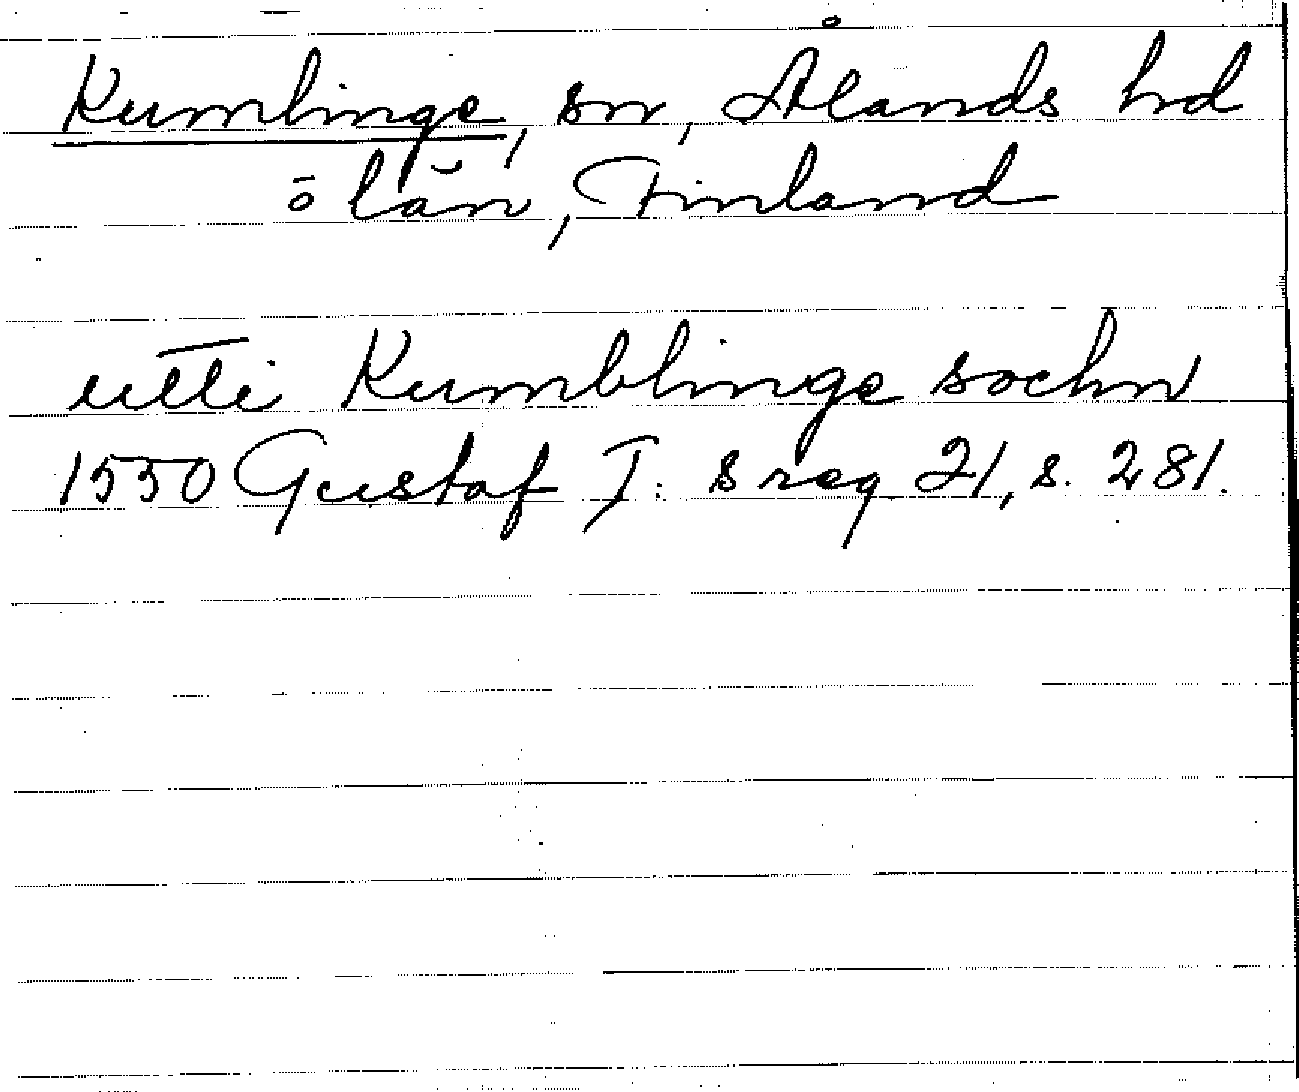 Kumlinge, sn, Ålands hd
ō län, Finland
utti Kumblinge sochn
1550 Gustaf I: s reg 21, s. 281.